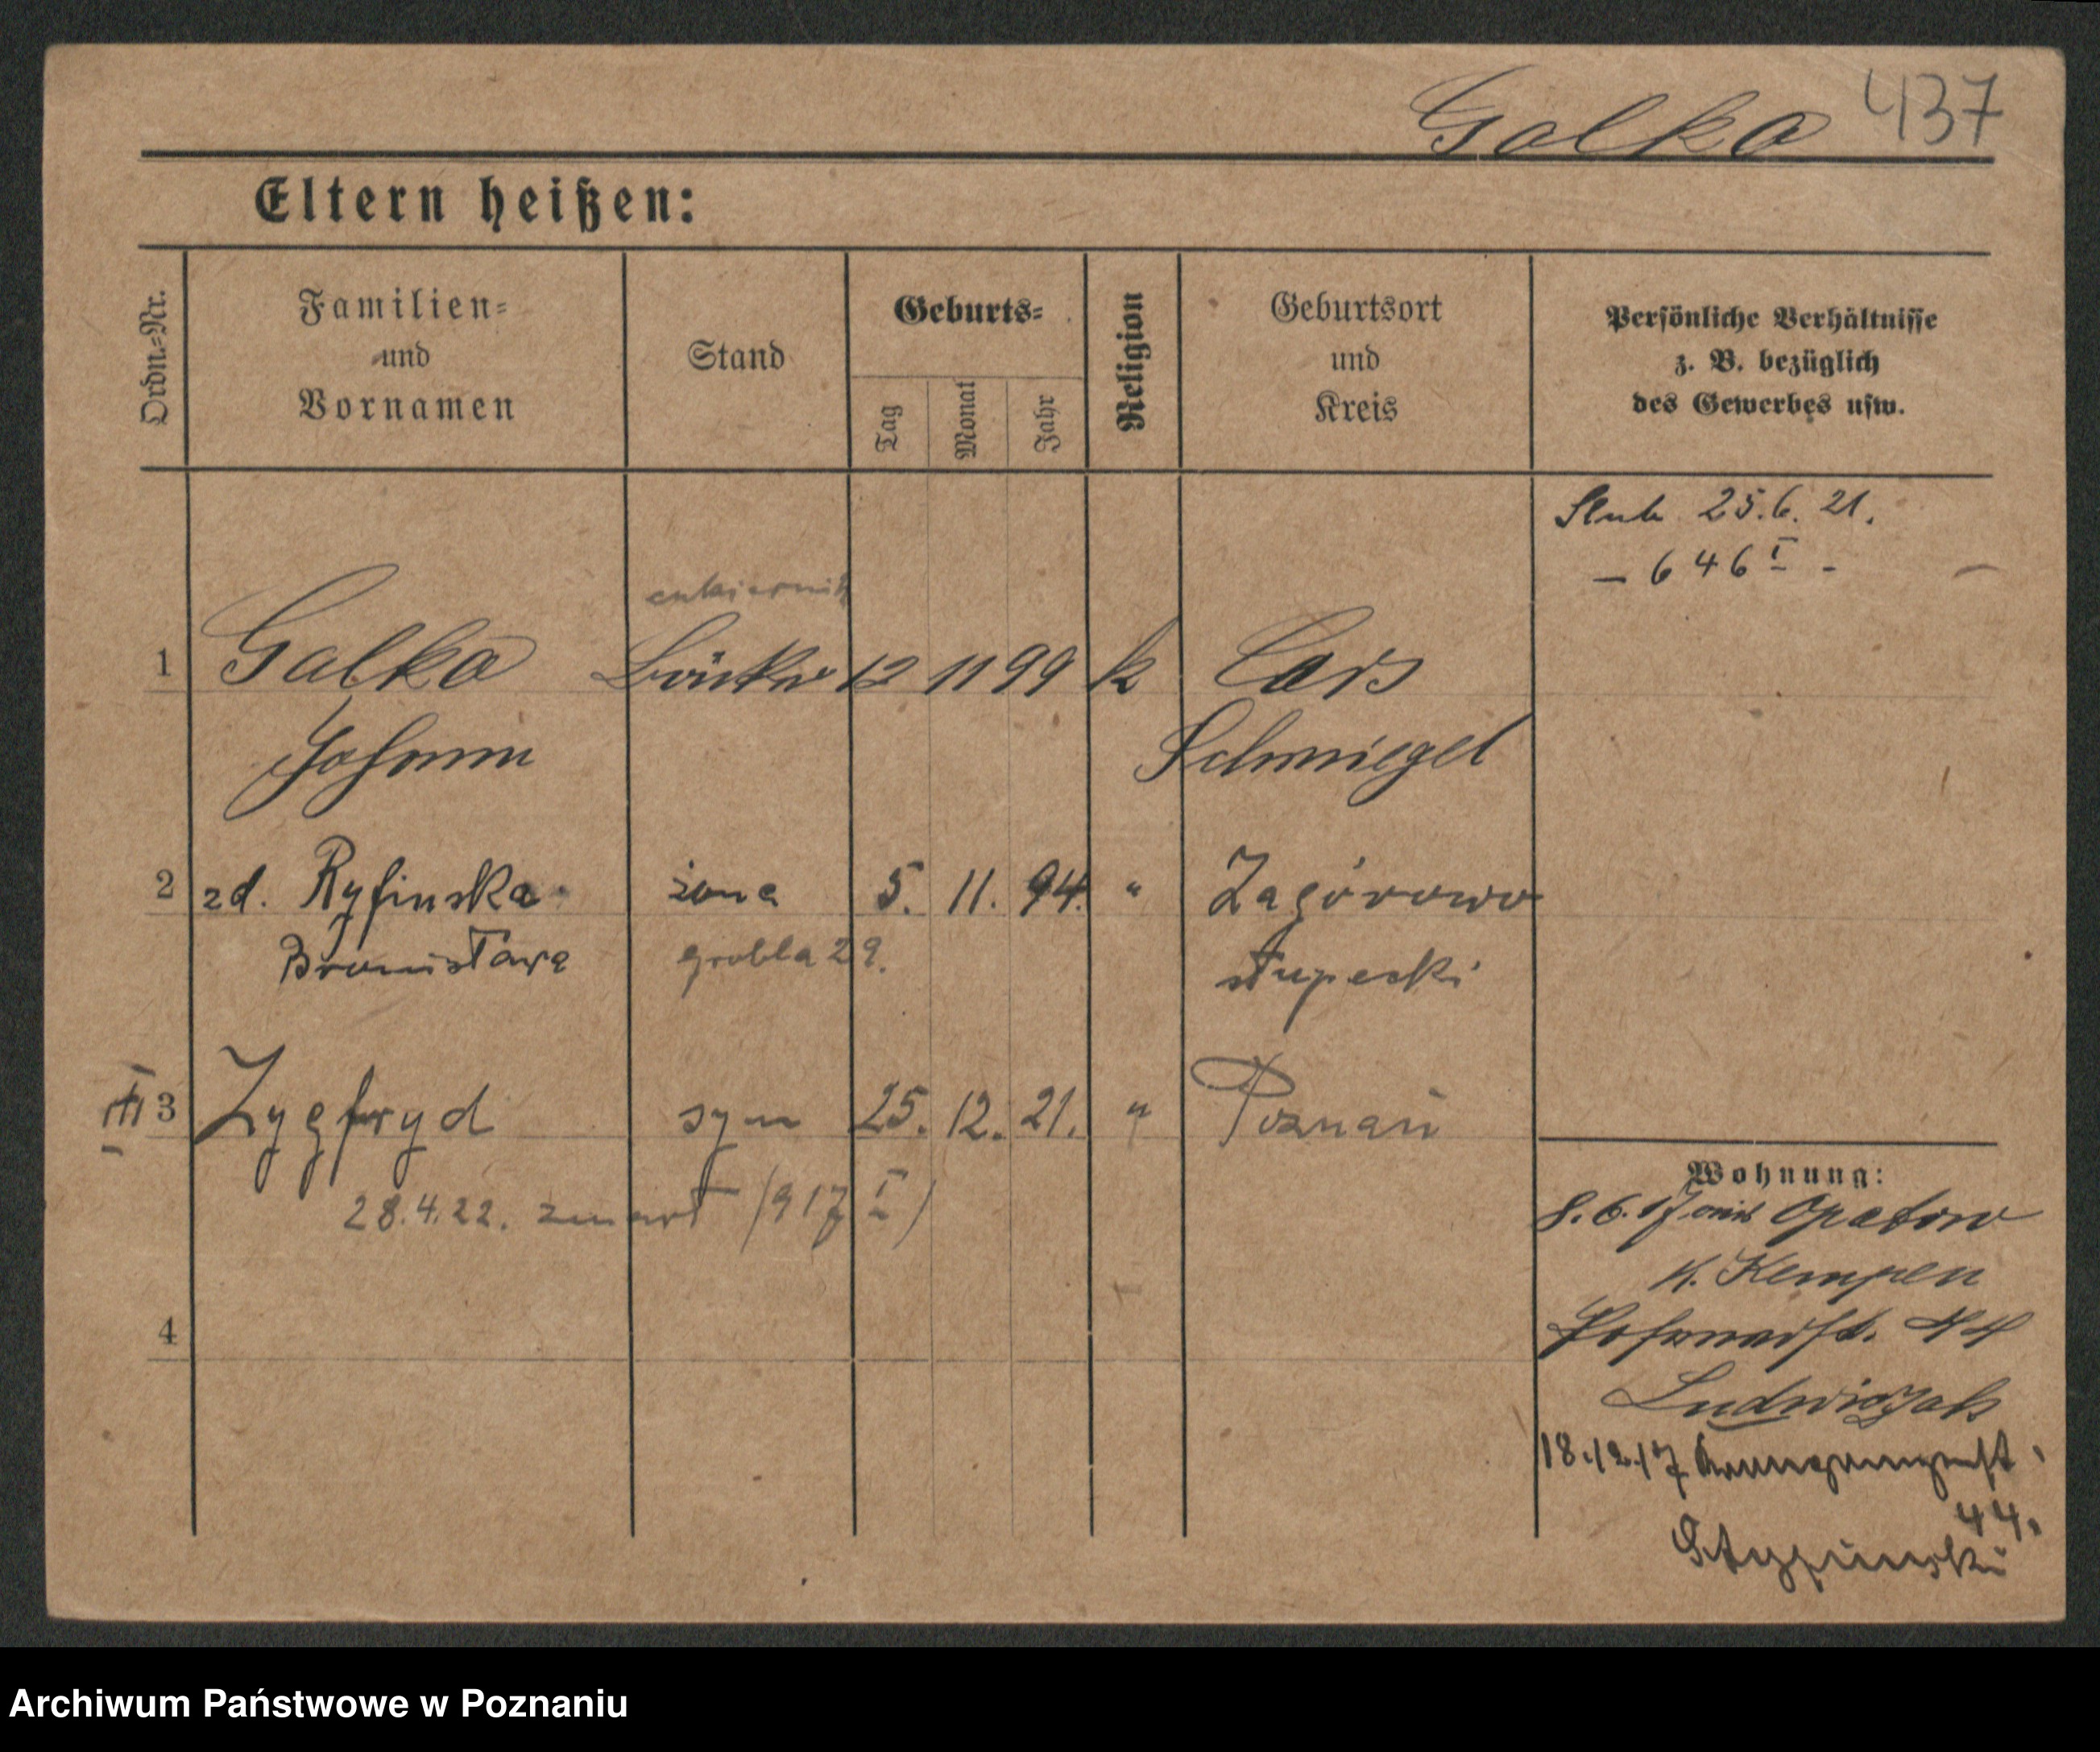 Galka 437
Eltern heißen:
Ordn.-Nr.
Familien-
und
Vornamen
Stand
Geburts-
Tag
Monat
Jahr
Religion
Geburtsort
und
Kreis
Persönliche Verhältnisse
z. B. bezüglich
des Gewerbes usw.
Slub 25.6.21.
- 646 I -
cukiernik
1 Galka Bäcker 12 11 99 k
Johann Schmiegel
2 zd. Ryfinska żona 5. 11. 94. " Zagórowo
Bronisława grobla 29. słupecki
III 3 Zygfryd syn 25. 12. 21. " Poznań
28.4.22. zmarł (917 I)
4
Wohnung:
8.6.17 aus Opatow
K. Kempen
44
Ludwiczak
18.12.17
44.
Stypinski
Archiwum Państwowe w Poznaniu